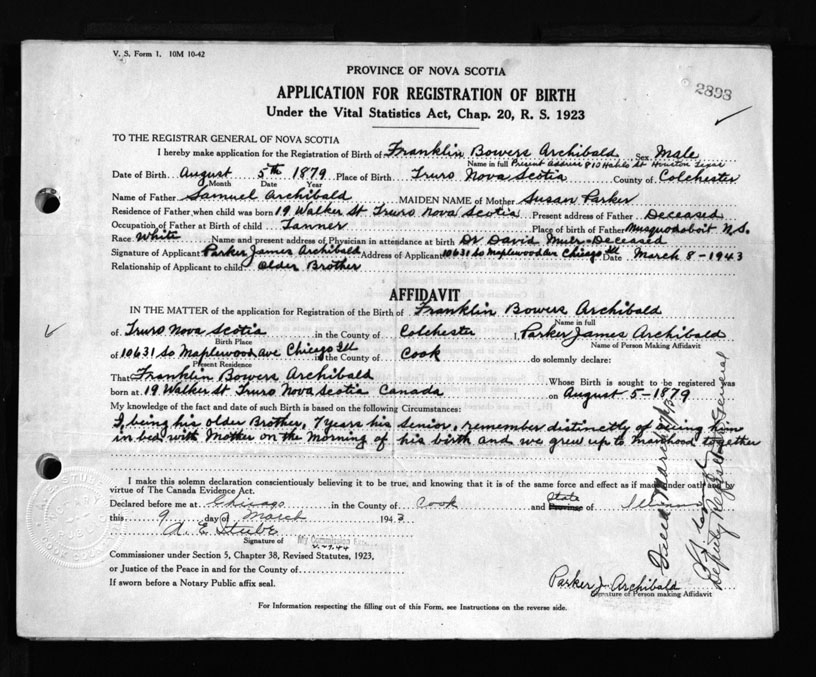 V. S. Form 1. 10M 10-42
PROVINCE OF NOVA SCOTIA
2898
APPLICATION FOR REGISTRATION OF BIRTH
Under the Vital Statistics Act, Chap. 20, R. S. 1923
TO THE REGISTRAR GENERAL OF NOVA SCOTIA
I hereby make application for the Registration of Birth of Franklin Bowers Archibald Sex Male
Name in full Present Address 910 St Houston Texas
Date of Birth August 5th 1879 Place of Birth Truro Nova Scotia County of Colchester
Month Date Year
Name of Father Samuel Archibald MAIDEN NAME of Mother Susan Parker
Residence of Father when child was born 19 Walker St Truro Nova Scotia Present address of Father Deceased
Occupation of Father at Birth of child Tanner Place of birth of Father Musquodoboit N.S.
Race White Name and present address of Physician in attendance at birth Dr David Muir-Deceased
Signature of Applicant Parker James Archibald Address of Applicant 10631 So Maplewood Av Chicago Ill Date March 8-1943
Relationship of Applicant to child Older Brother
AFFIDAVIT
IN THE MATTER of the application for Registration of the Birth of Franklin Bowers Archibald
Name in full
of Truro Nova Scotia in the County of Colchester I, Parker James Archibald
Birth Place Name of Person Making Affidavit
of 10631 So Maplewood ave Chicago Ill in the County of Cook do solemnly declare:
Present Residence
That Franklin Bowers Archibald Whose Birth is sought to be registered was
born at 19 Walker St Truro Nova Scotia Canada on August 5-1879
My knowledge of the fact and date of such Birth is based on the following Circumstances:
I, being his older Brother, 7 years his senior, remember distinctly of seeing him
in bed with Mother on the Morning of his birth and we grew up to manhood together
I make this solemn declaration conscientiously believing it to be true, and knowing that it is of the same force and effect as if made under oath and by
virtue of The Canada Evidence Act.
Declared before me at Chicago in the County of Cook and State Province of Illinois
this 9 day of March 1943
A. E. Stube
Signature of My Commission
Commissioner under Section 5, Chapter 38, Revised Statutes, 1923,
or Justice of the Peace in and for the County of
If sworn before a Notary Public affix seal.
Parker J. Archibald
Signature of Person making Affidavit
For Information respecting the filling out of this Form, see Instructions on the reverse side.
Filed March
Deputy Registrar General